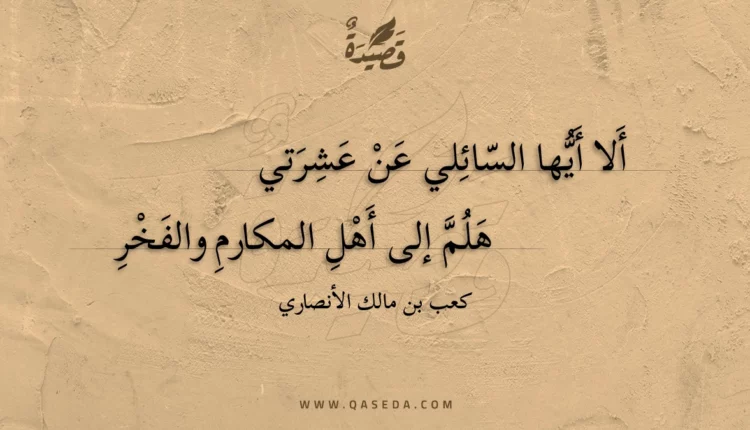 قَصِيدَةٌ
أَلا أَيُّها السّائِلي عَنْ عَشِرَتي
هَلُمَّ إلى أَهْلِ المكارمِ والفَخْرِ
كعب بن مالك الأنصاري
WWW.QASEDA.COM